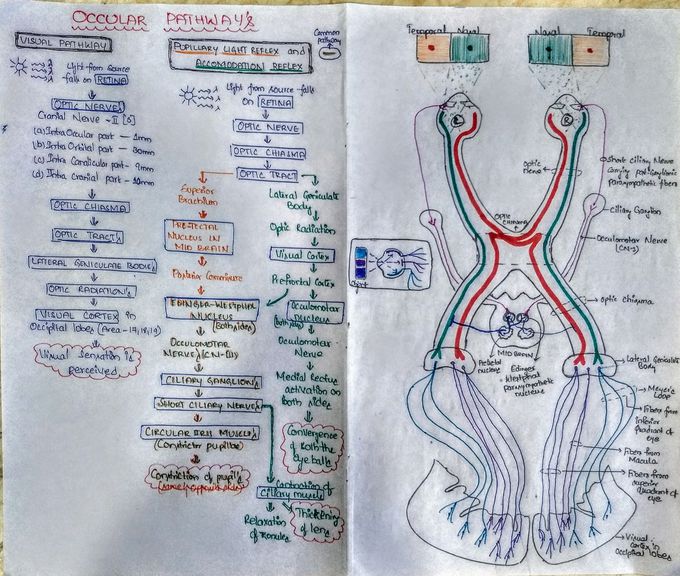 OCCULAR PATHWAY's
VISUAL PATHWAY
Light from source
falls on RETINA
OPTIC NERVE
Cranial Nerve - II
(a) Intra Occular part - 1mm
(b) Intra Orbital part - 30mm
(c) Intra Canalicular part - 9mm
(d) Intra Cranial part - 10mm
OPTIC CHIASMA
OPTIC TRACT's
LATERAL GENICULATE BODIE's
OPTIC RADIATION's
VISUAL CORTEX in
Occipital lobes (Area - 17,18,19)
Visual sensation is
perceived
PUPILLARY LIGHT REFLEX and
ACCOMODATION REFLEX
Common
pathway
Light from source falls
on RETINA
OPTIC NERVE
OPTIC CHIASMA
OPTIC TRACT
Superior
Brachium
PRETECTAL
NUCLEUS IN
MID BRAIN
Posterior Commisure
EDINGER-WESTPHAL
NUCLEUS
(Both sides)
OCCULOMOTOR
NERVE's (CN-III)
CILIARY GANGLION's
SHORT CILIARY NERVE's
CIRCULAR IRIS MUSCLE's
(Constrictor pupillae)
Constriction of pupil's
Lateral Geniculate
Body
Optic Radiation
Visual Cortex
Prefrontal Cortex
Oculomotor
nucleus
(both sides)
Oculomotor
Nerve
Medial Rectus
activation on
Both sides
Convergence
of Both the
eye balls
Contraction of
Ciliary muscle
Relaxation
of zonules
Thickening
of lens
Temporal Nasal
Nasal Temporal
L
R
Optic
Nerve
OPTIC
CHIASMA
Short ciliary Nerve
carrying post Ganglionic
parasympathetic fibers
Ciliary Ganglion
Occulomotor Nerve
(CN-3)
Light
Optic chiasma
MID BRAIN
Pretectal
nucleus
Edinger
Westphal
parasympathetic
nucleus
Lateral Geniculate
Body
Meyer's
Loop
Fibers from
Inferior
Quadrant of
eye
Fibers from
Macula
Fibers from
superior
Quadrant of
eye
Visual
cortex in
Occipital lobes